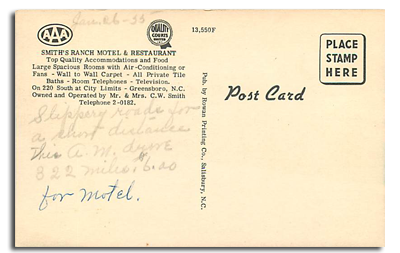 Jan. 26-55
AAA
QUALITY
COURTS
UNITED
13,550F
PLACE
STAMP
HERE
SMITH'S RANCH MOTEL & RESTAURANT
Top Quality Accommodations and Food
Large Spacious Rooms with Air-Conditioning or
Fans - Wall to Wall Carpet - All Private Tile
Baths - Room Telephones - Television.
On 220 South at City Limits - Greensboro, N.C.
Owned and Operated by Mr. & Mrs. C.W. Smith
Telephone 2-0182.
Post Card
Pub. by Rowan Printing Co., Salisbury, N.C.
Slippery roads for
a short distance
this A.M. drove
322 miles $6.00
for Motel.